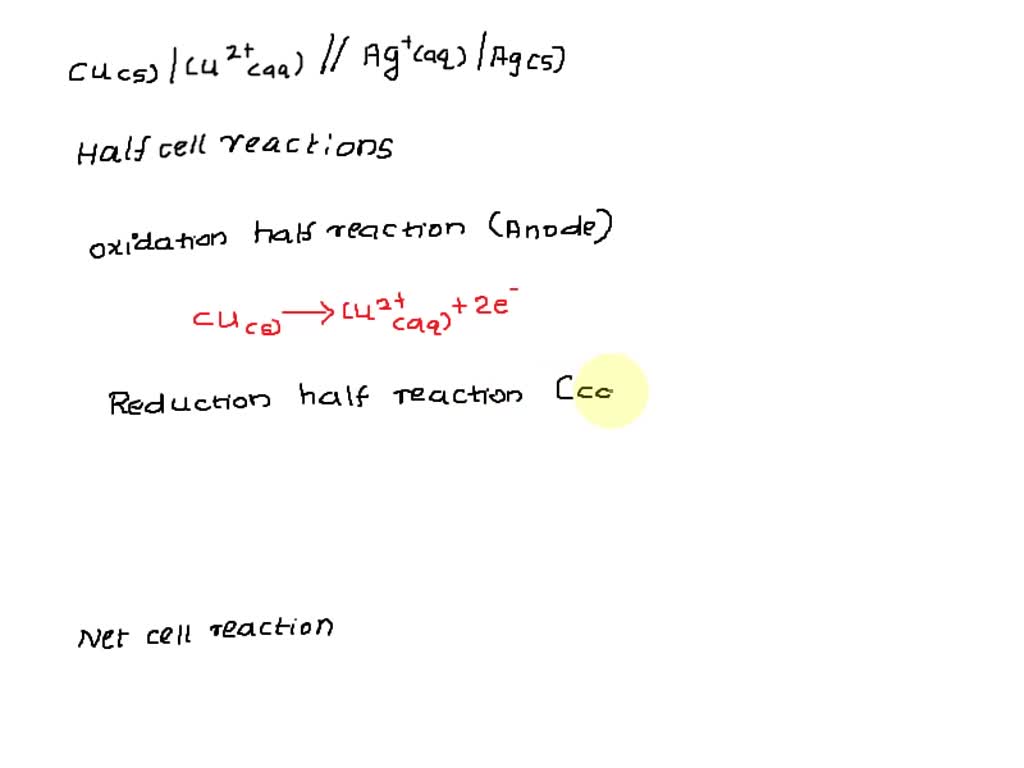 Cu(s) | Cu²⁺(aq) // Ag⁺(aq) | Ag(s)
Half cell reactions
oxidation half reaction (Anode)
Cu(s) → Cu²⁺(aq) + 2e⁻
Reduction half reaction (
Net cell reaction